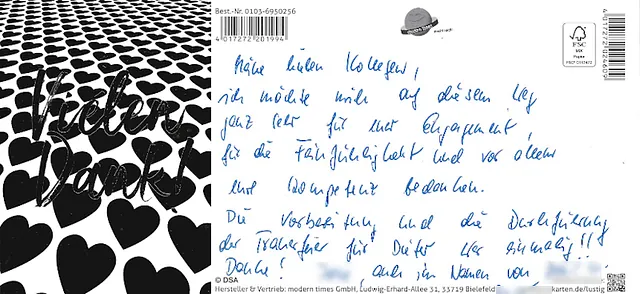 Vielen
Dank!
Best.-Nr. 0103-6950256
4 017272 201994
Meine lieben Kollegen,
ich möchte mich auf diesem Weg
ganz sehr für euer Engagement,
für die Feinfühligkeit und vor allem
eure Kompetenz bedanken.
Die Vorbereitung und die Durchführung
der Trauerfeier für Dieter war einmalig!!!
Danke! auch im Namen von
© DSA
Hersteller & Vertrieb: modern times GmbH, Ludwig-Erhard-Allee 31, 33719 Bielefeld
karten.de/lustig
FSC
MIX